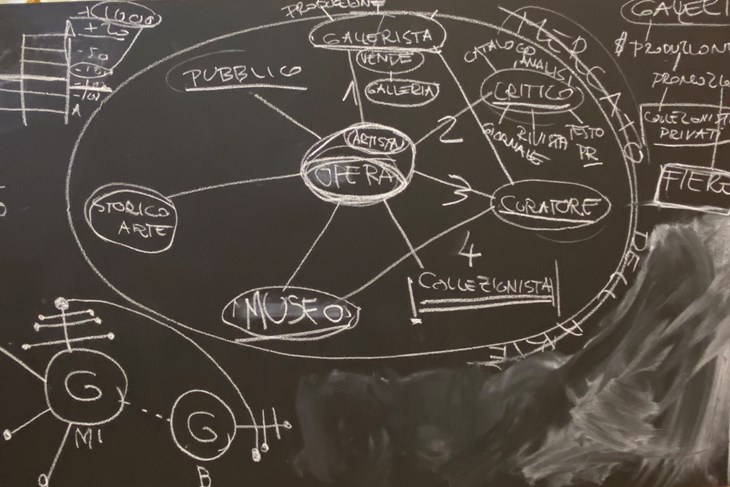 PROMOZIONE
GALLERISTA
VENDE
GALLERIA
1
PUBBLICO
CATALOGO
ANALISI
CRITICO
GIORNALE
RIVISTA
TESTO
PR
2
ARTISTA
OPERA
3
CURATORE
STORICO
ARTE
4
COLLEZIONISTA
MUSEO
MERCATO
DELL'ARTE
-50
A
GALLERI
$ PRODUZIONE
PROMOZI
COLLEZIONISTI
PRIVATI
FIERE
G
MI
G
B